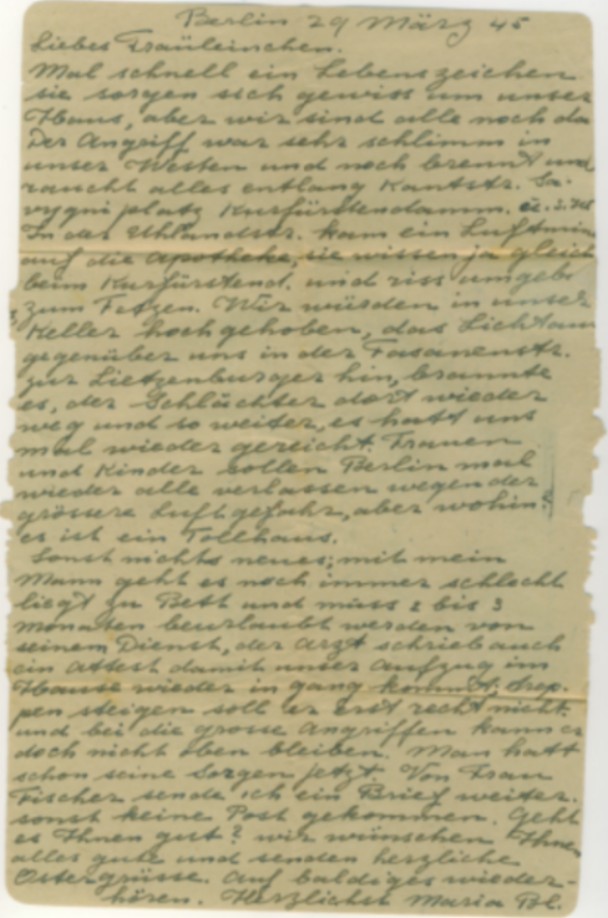 Berlin 29 März 45
Liebes Fräuleinchen.
Mal schnell ein Lebenszeichen
sie sorgen sich gewiss um unser
Haus, aber wir sind alle noch da
Der Angriff war sehr schlimm in
unser Westen und noch brennt und
raucht alles entlang Kantstr. Sa-
vygni platz Kurfürstendamm.
In der Uhlandstr. kam ein Luftmin
auf die Apotheke, sie wissen ja gleich
beim Kurfürstend. und riss umgeb
zum Fetzen. Wir würden in unser
Keller hochgehoben, das Licht aus
gegenüber uns in der Fasanenstr.
zur Lietzenburger hin, brannte
es, der Schlächter dort wieder
weg und so weiter, es hatt uns
mal wieder gereicht. Frauen
und Kinder sollen Berlin mal
wieder alle verlassen wegen der
grössere Luftgefahr, aber wohin?
es ist ein Tollhaus.
Sonst nichts neues; mit mein
Mann geht es noch immer schlecht
liegt zu Bett und muss 2 bis 3
Monaten beurlaubt werden von
seinem Dienst, der Arzt schrieb auch
ein Attest damit unser Aufzug im
Hause wieder in gang kommt, Trep-
pen steigen soll er erst recht nicht.
und bei die grosse Angriffen kann er
doch nicht oben bleiben. Man hatt
schon seine Sorgen jetzt. Von Frau
Fischer sende ich ein Brief weiter.
sonst keine Post gekommen. Geht
es Ihnen gut? wir wünschen Ihnen
alles gute und senden herzliche
Ostergrüsse. Auf baldiges wieder-
hören. Herzlichst Maria Bl.